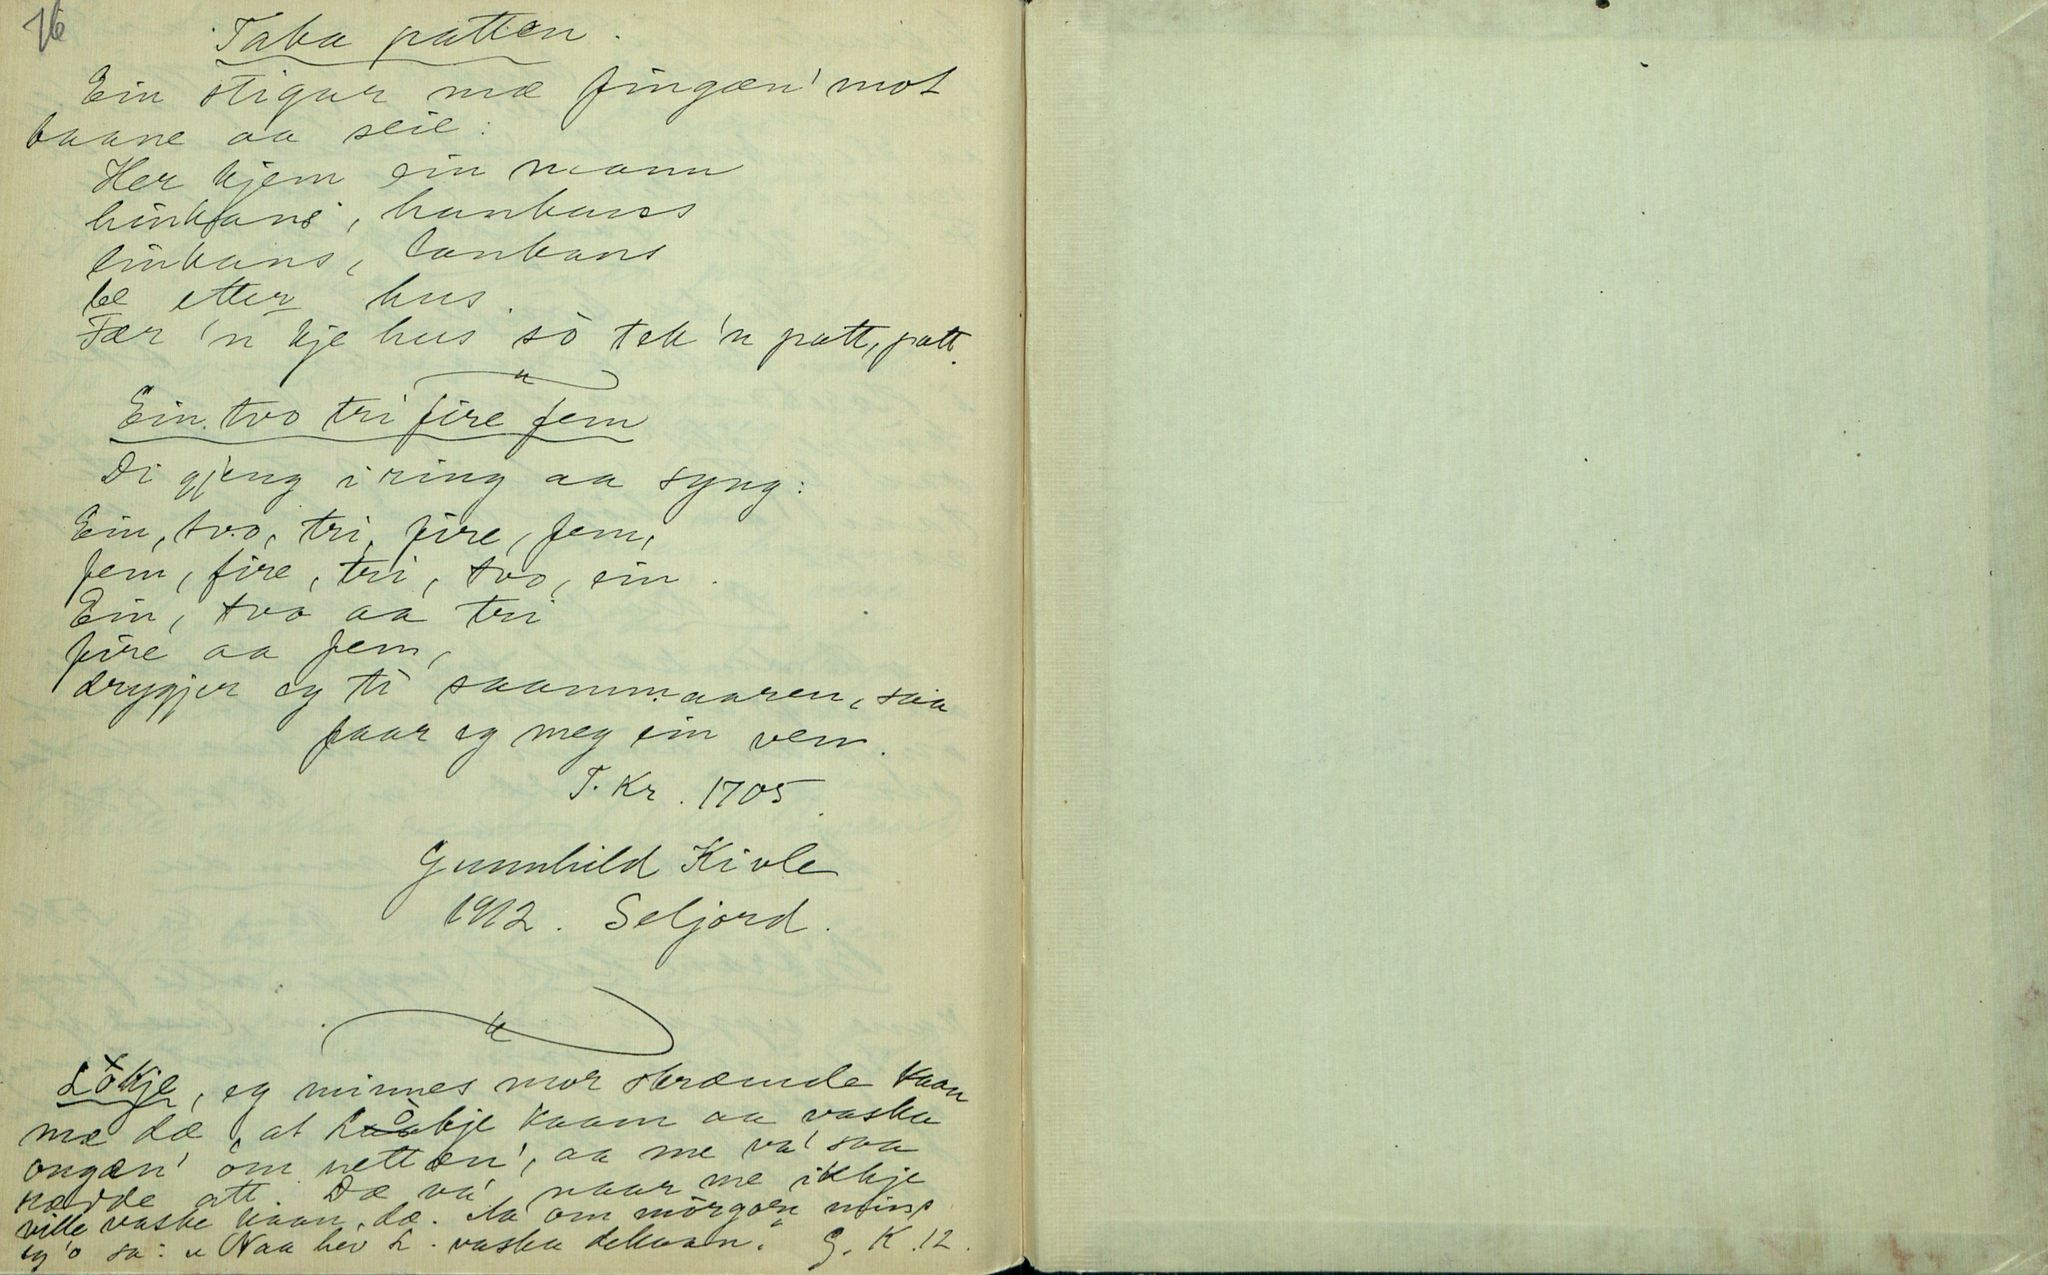 76
Taka patten.
Ein stigar mæ fingæn' mot
baane aa seie:
Her kjem ein mann
hinkans, hankans
linkans, lankans
be etter hus.
Fær 'n kje hus sò tek 'n patt, patt.
Ein tvo tri fire fem
Di gjeng i ring aa syng:
Ein, tvo, tri, fire, fem,
fem, fire, tri, tvo, ein.
Ein, tvo aa tri
fire aa fem,
drygjer eg ti saammaaren, saa
faar eg meg ein ven.
T. Kr. 1705.
Gunnhild Kivle
1912. Seljord.
Lòkje, eg minnes mor skræmde kaan
mæ dæ, at Lòkje kaam aa vaska
ongæn' òm nettæn', aa me va' saa
rædde att. Dæ va' naar me ikkje
ville vaske kaan, dæ. Aa om mòrgon mins
eg 'o sa: "Naa hev L. vaska dekaan." G. K. 12.